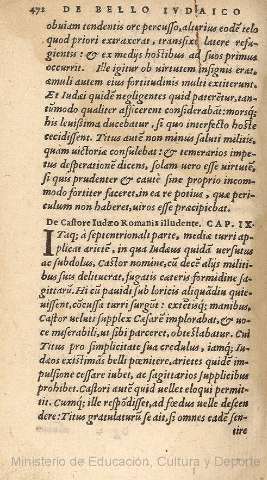 472 DE BELLO IVDAICO
obuiam tendentis ore percusso, alterius eodẽ telo
quod priori extraxerat, transfixit latere refu-
gientis: & ex medys hostibus ad suos primus
occurrit. Ille igitur ob virtutem insignis erat,
æmuli autem eius fortitudinis multi extiterunt.
Et Iudæi quidẽ negligentes quid paterẽtur, tan-
tũmodo qualiter afficerent considerabãt: morsq;
his leuissima ducebatur, si quo interfecto hoste
cecidissent. Titus autẽ non minus saluti militis,
quam victoriæ consulebat: & temerarios impe-
tus desperationẽ dicens, solam vero esse virtutẽ,
si quis prudenter & cautè sine proprio incom-
modo fortiter faceret, in ea re potius, quæ peri-
culum non haberet, viros esse præcipiebat.
De Castore Iudæo Romanis illudente. CAP. IX.
ITaq; à septentrionali parte, mediæ turri ap-
plicat arietẽ, in qua Iudæus quidã versutus
ac subdolus, Castor nomine, cũ decẽ alijs militi-
bus suis delituerat, fugatis cæteris formidine sa-
gittarũ. Hi cũ pauidi sub loricis aliquãdiu quie-
uissent, cõcussa turri surgũt: extẽtisq; manibus,
Castor veluti supplex Cæsarẽ implorabat, & vo-
ce miserabili, vt sibi parceret, obtestabatur. Cui
Titus pro simplicitate sua credulus, iamq; Iu-
dæos existimãs belli pœnitere, arietis quidẽ im-
pulsione cessare iubet, ac sagittarios supplicibus
prohibet. Castori autẽ quid vellet eloqui permit-
tit. Cumq; ille respõdisset, ad fœdus uelle descen
dere: Titus gratulaturũ se ait, si omnes eadẽ sen-
tire
Ministerio de Educación, Cultura y Deporte